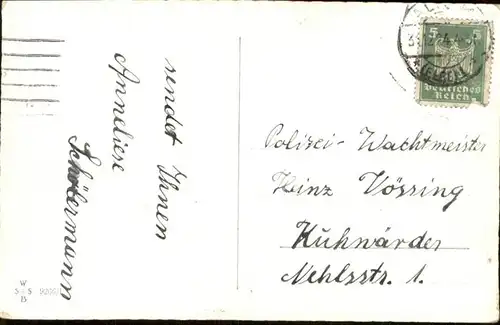 sendet Ihnen
Anneliese
Schötermann
W
3-8
B
5 5
Deutsches
Reich
Polizei-Wachtmeister
Heinz Vössing
Kuhwärder
Nehlsstr. 1.